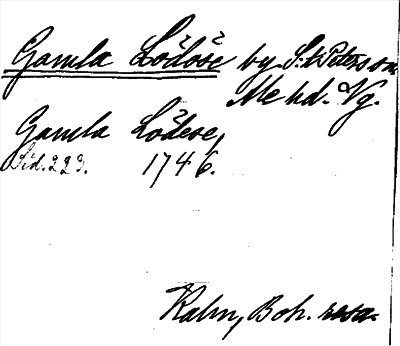 Gamla Lödöse by. S:t Peters sn
Ale hd. Vg.
Gamla Lödese,
Sid. 223. 1746.
Kalm, Boh. resa.